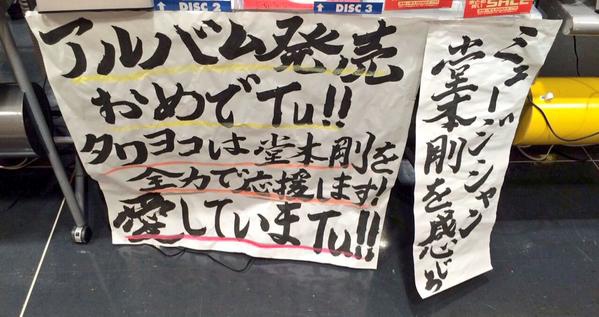 DISC 2
DISC 3
SALE
アルバム発売
おめでTu!!
タワヨコは堂本剛を
全力で応援します!
愛していまTu!!
ミュージシャン
堂本剛を感じろ